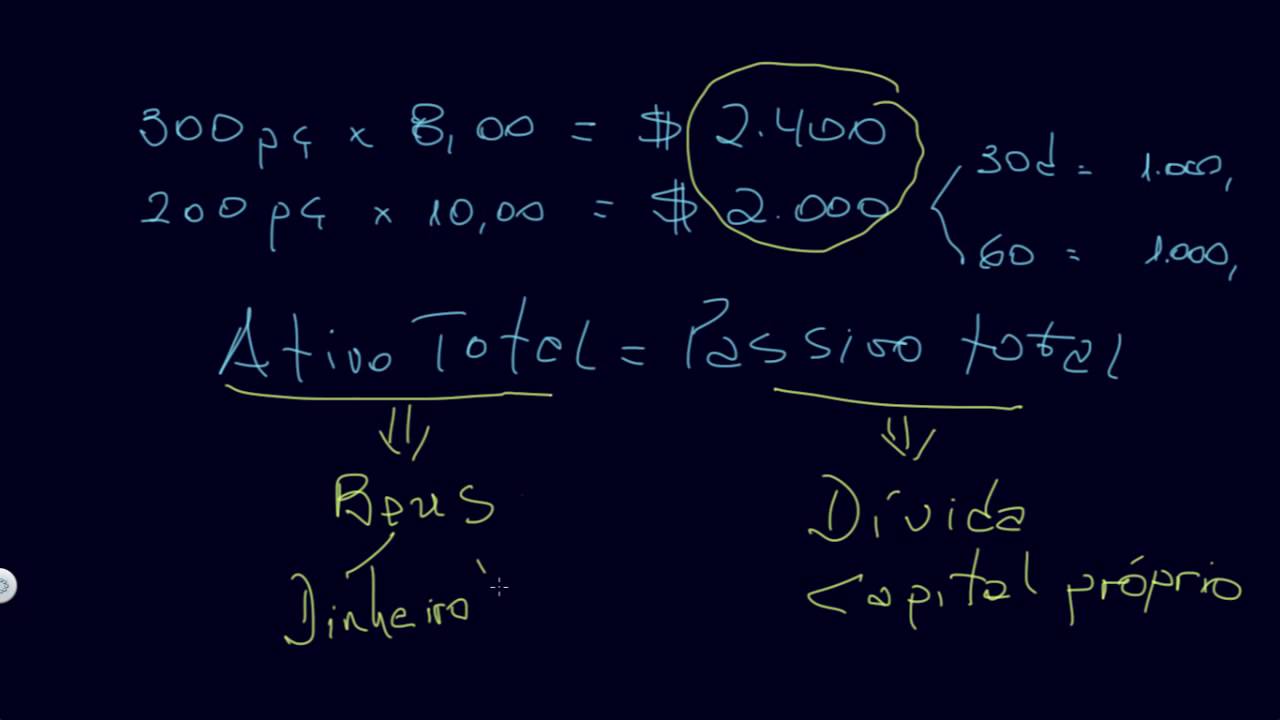 300 pç x 8,00 = $ 2.400
200 pç x 10,00 = $ 2.000
30d = 1.000,
60 = 1.000,
Ativo Total = Passivo total
Bens
Dinheiro
Dívida
Capital próprio